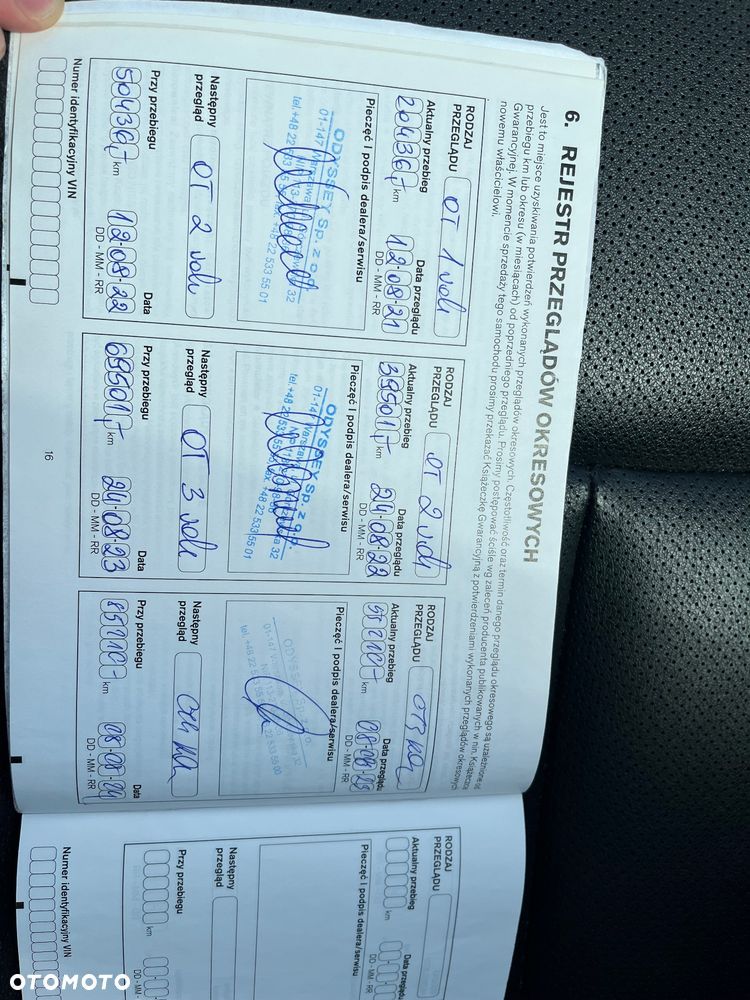 6. REJESTR PRZEGLĄDÓW OKRESOWYCH
Jest to miejsce uzyskiwania potwierdzeń wykonanych przeglądów okresowych. Częstotliwość oraz termin danego przeglądu okresowego są uzależnione od
przebiegu km lub okresu (w miesiącach) od poprzedniego przeglądu. Prosimy postępować ściśle wg zaleceń producenta publikowanych w nin. Książeczce
Gwarancyjnej. W momencie sprzedaży tego samochodu prosimy przekazać Książeczkę Gwarancyjną z potwierdzeniami wykonanych przeglądów okresowych
nowemu właścicielowi.
RODZAJ
PRZEGLĄDU OT 1 rok
Aktualny przebieg Data przeglądu
20436,- km 12-08-21
DD - MM - RR
Pieczęć i podpis dealera/serwisu
ODYSSEY Sp. z o.o.
01-147 Warszawa 32
tel. +48 22 533 55 fax +48 22 533 55 01
Następny
przegląd OT 2 rok
Przy przebiegu Data
50436,- km 12-08-22
DD - MM - RR
RODZAJ
PRZEGLĄDU OT 2 rok
Aktualny przebieg Data przeglądu
39501,- km 24-08-22
DD - MM - RR
Pieczęć i podpis dealera/serwisu
ODYSSEY Sp. z o.o.
01-147 Warszawa 32
tel. +48 22 533 55 fax +48 22 533 55 01
Następny
przegląd OT 3 rok
Przy przebiegu Data
69501,- km 24-08-23
DD - MM - RR
RODZAJ
PRZEGLĄDU OT3
Aktualny przebieg Data przeglądu
55210,- km 08-08-23
DD - MM - RR
Pieczęć i podpis dealera/serwisu
ODYSSEY
01-147
tel. +48 22 5 533 55 00
Następny
przegląd OT4
Przy przebiegu Data
85210,- km 08-08-24
DD - MM - RR
Numer identyfikacyjny VIN
16
RODZAJ
PRZEGLĄDU
Aktualny przebieg Data przeglądu
km DD - MM - RR
Pieczęć i podpis dealera/serwisu
Następny
przegląd
Przy przebiegu
km DD - MM
Numer identyfikacyjny VIN
OTOMOTO